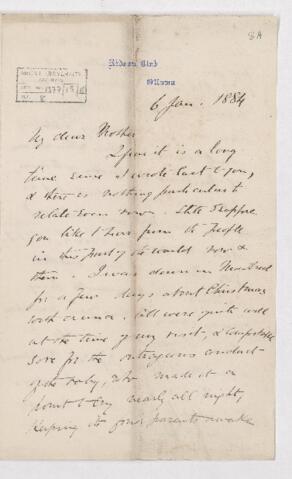 8A
Rideau Club
Ottawa
ACC. NO. 1377
REF. 8
6 Jan. 1884
My dear Mother
I fear it is a long
time since I wrote last to you,
& there is nothing particular to
relate even now. Still I suppose
you like to hear from the people
in this part of the world now &
then. I was down in Montreal
for a few days about Christmas
All were quite well
at the time of my visit, & comfortable
save for the outrageous conduct
of the baby, who made it a
point to cry nearly all night,
keeping its poor parents awake